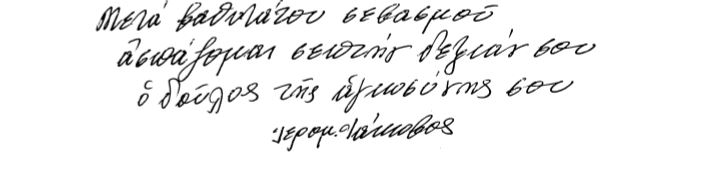 Μετά βαθυτάτου σεβασμοῦ
ἀσπάζομαι σεπτήν δεξιάν σου
ὁ δοῦλος τῆς ἁγιοσύνης σου
Ἱερομ. Ἰάκωβος